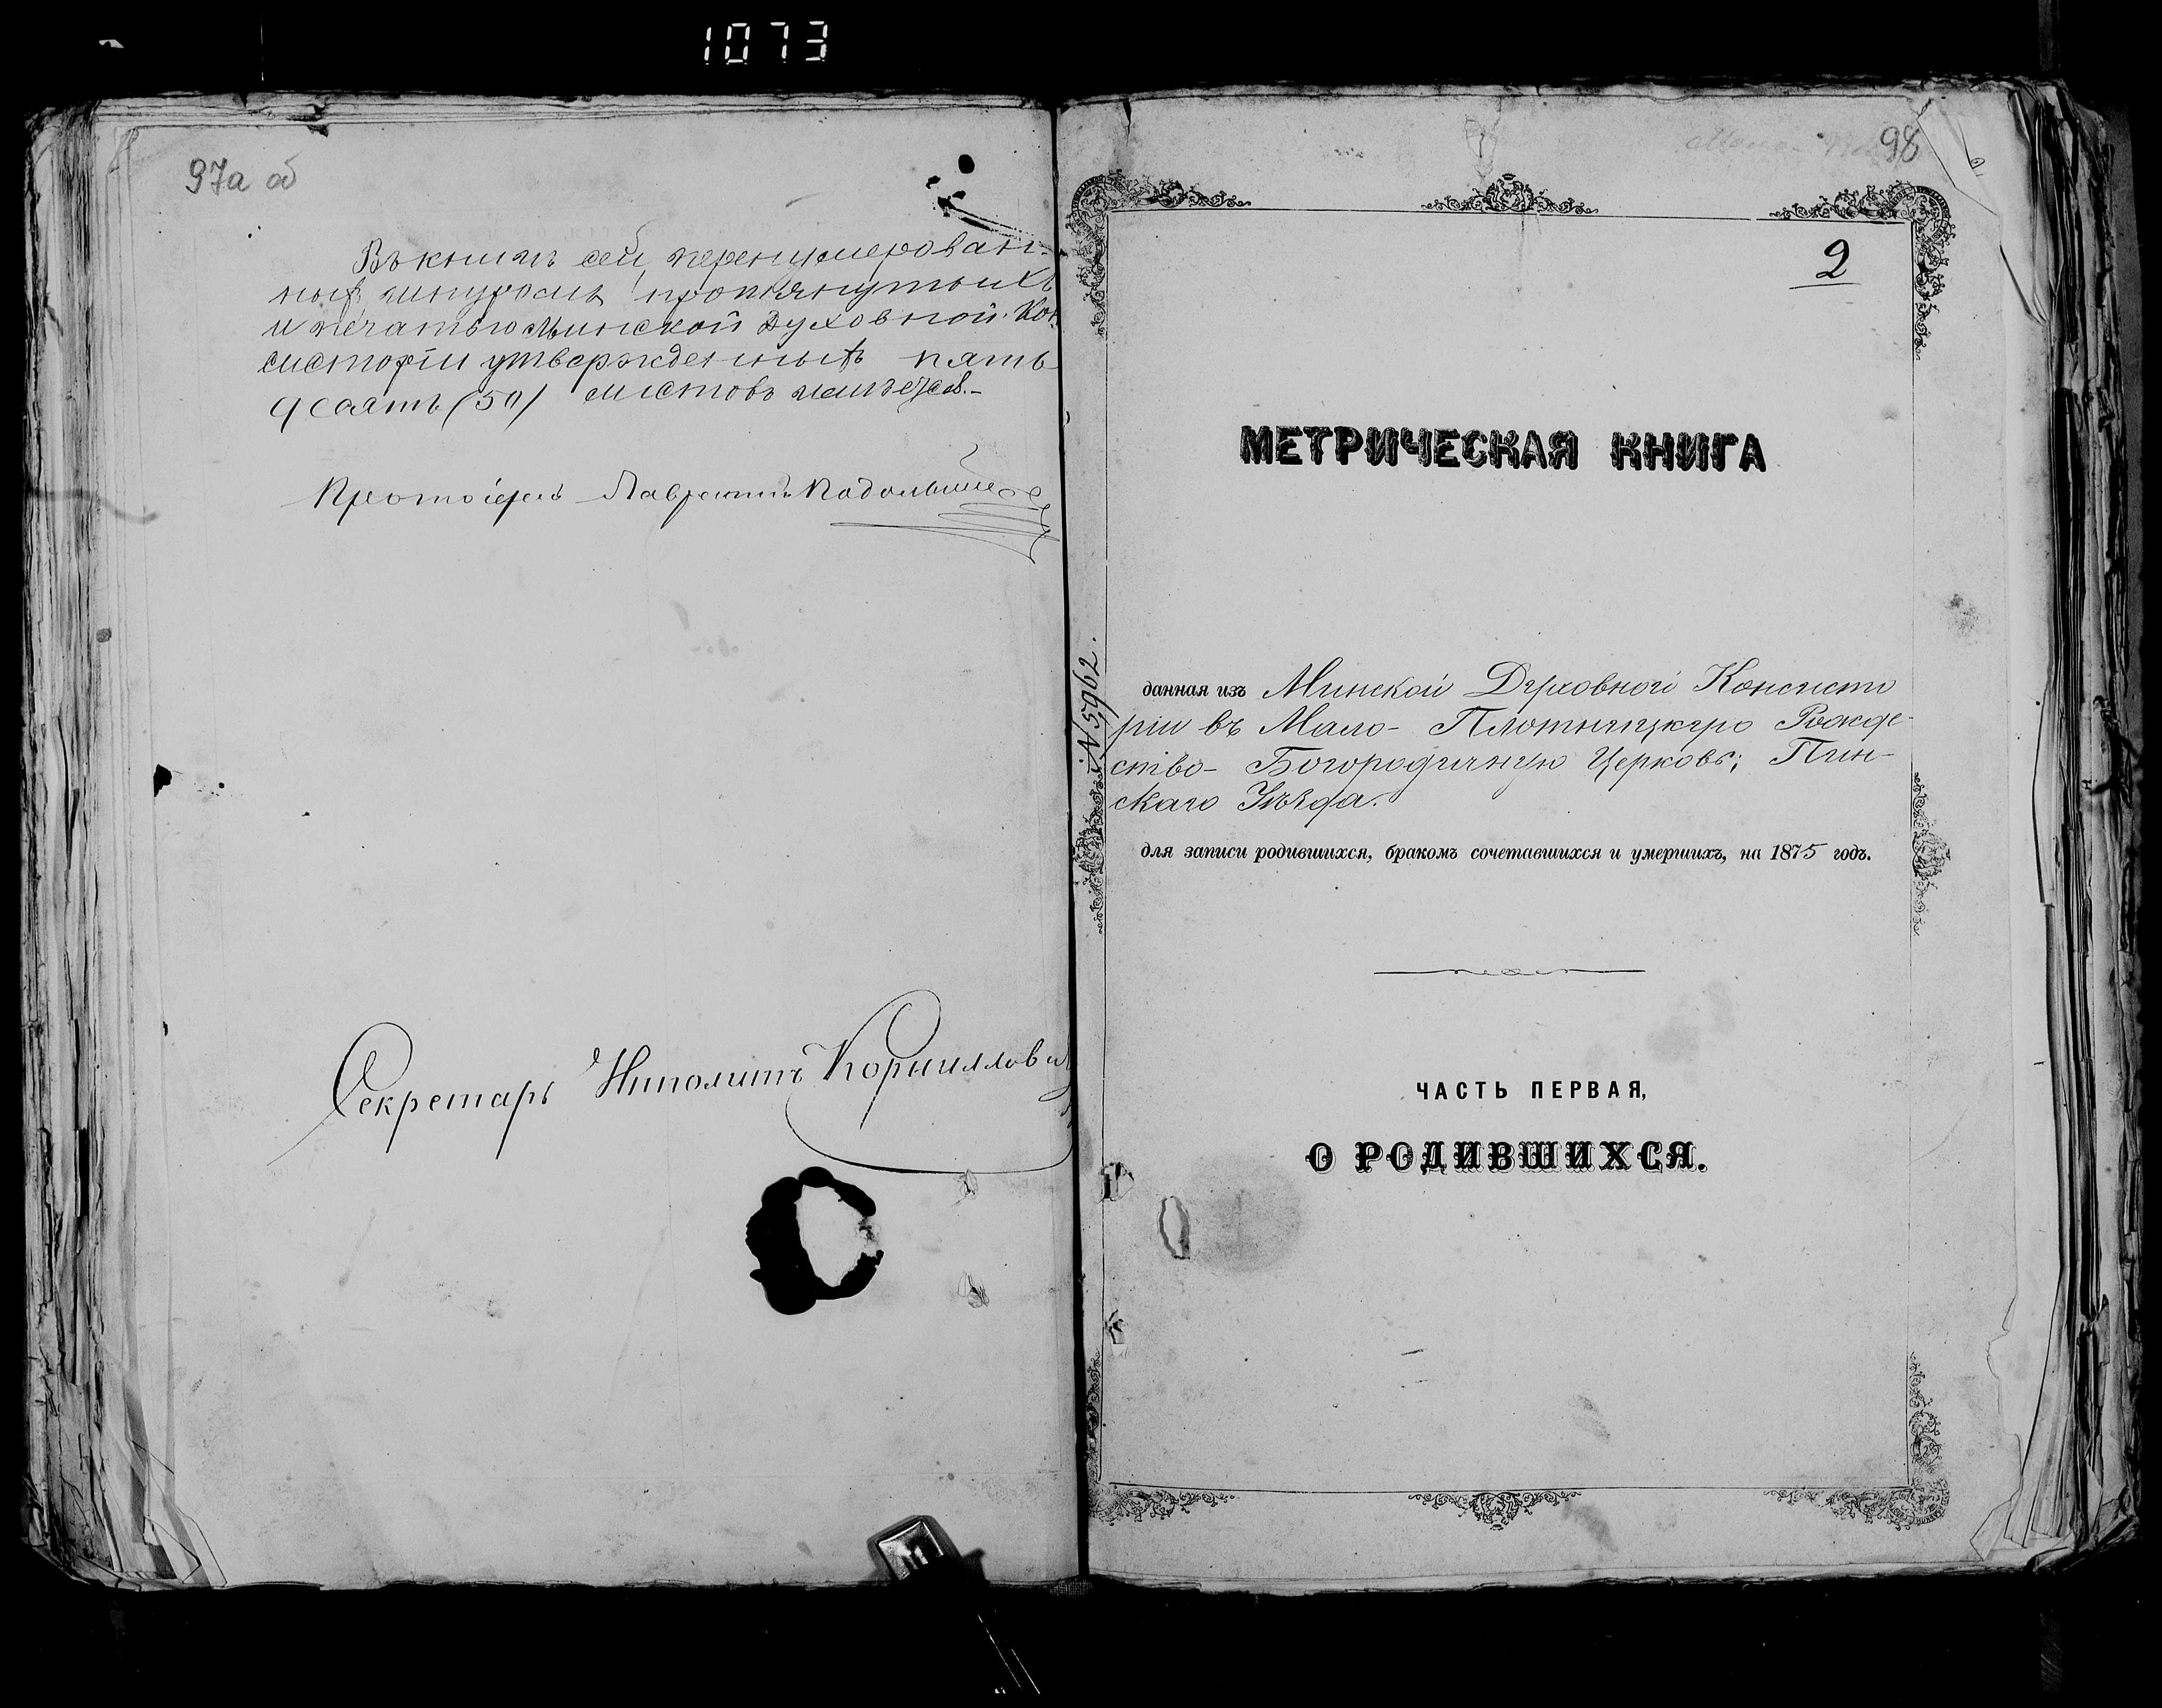 1073
97а об
Въ книгѣ сей перенумерован-
ныхъ, шнуромъ протянутыхъ
и печатью Минской Духовной Кон-
систоріи утвержденныхъ пять
десятъ (50) листовъ
Протоіерей Лаврентій Подольскій
Секретарь Иполитъ Корниллови
98
2
МЕТРИЧЕСКАЯ КНИГА
№ 5962.
данная изъ Минской Духовной Консисто
ріи въ Мало- Плотницкую Рожде-
ство- Богородичную Церковь; Пин-
скаго Уѣзда.
для записи родившихся, бракомъ сочетавшихся и умершихъ, на 1875 годъ.
ЧАСТЬ ПЕРВАЯ,
О РОДИВШИХСЯ.